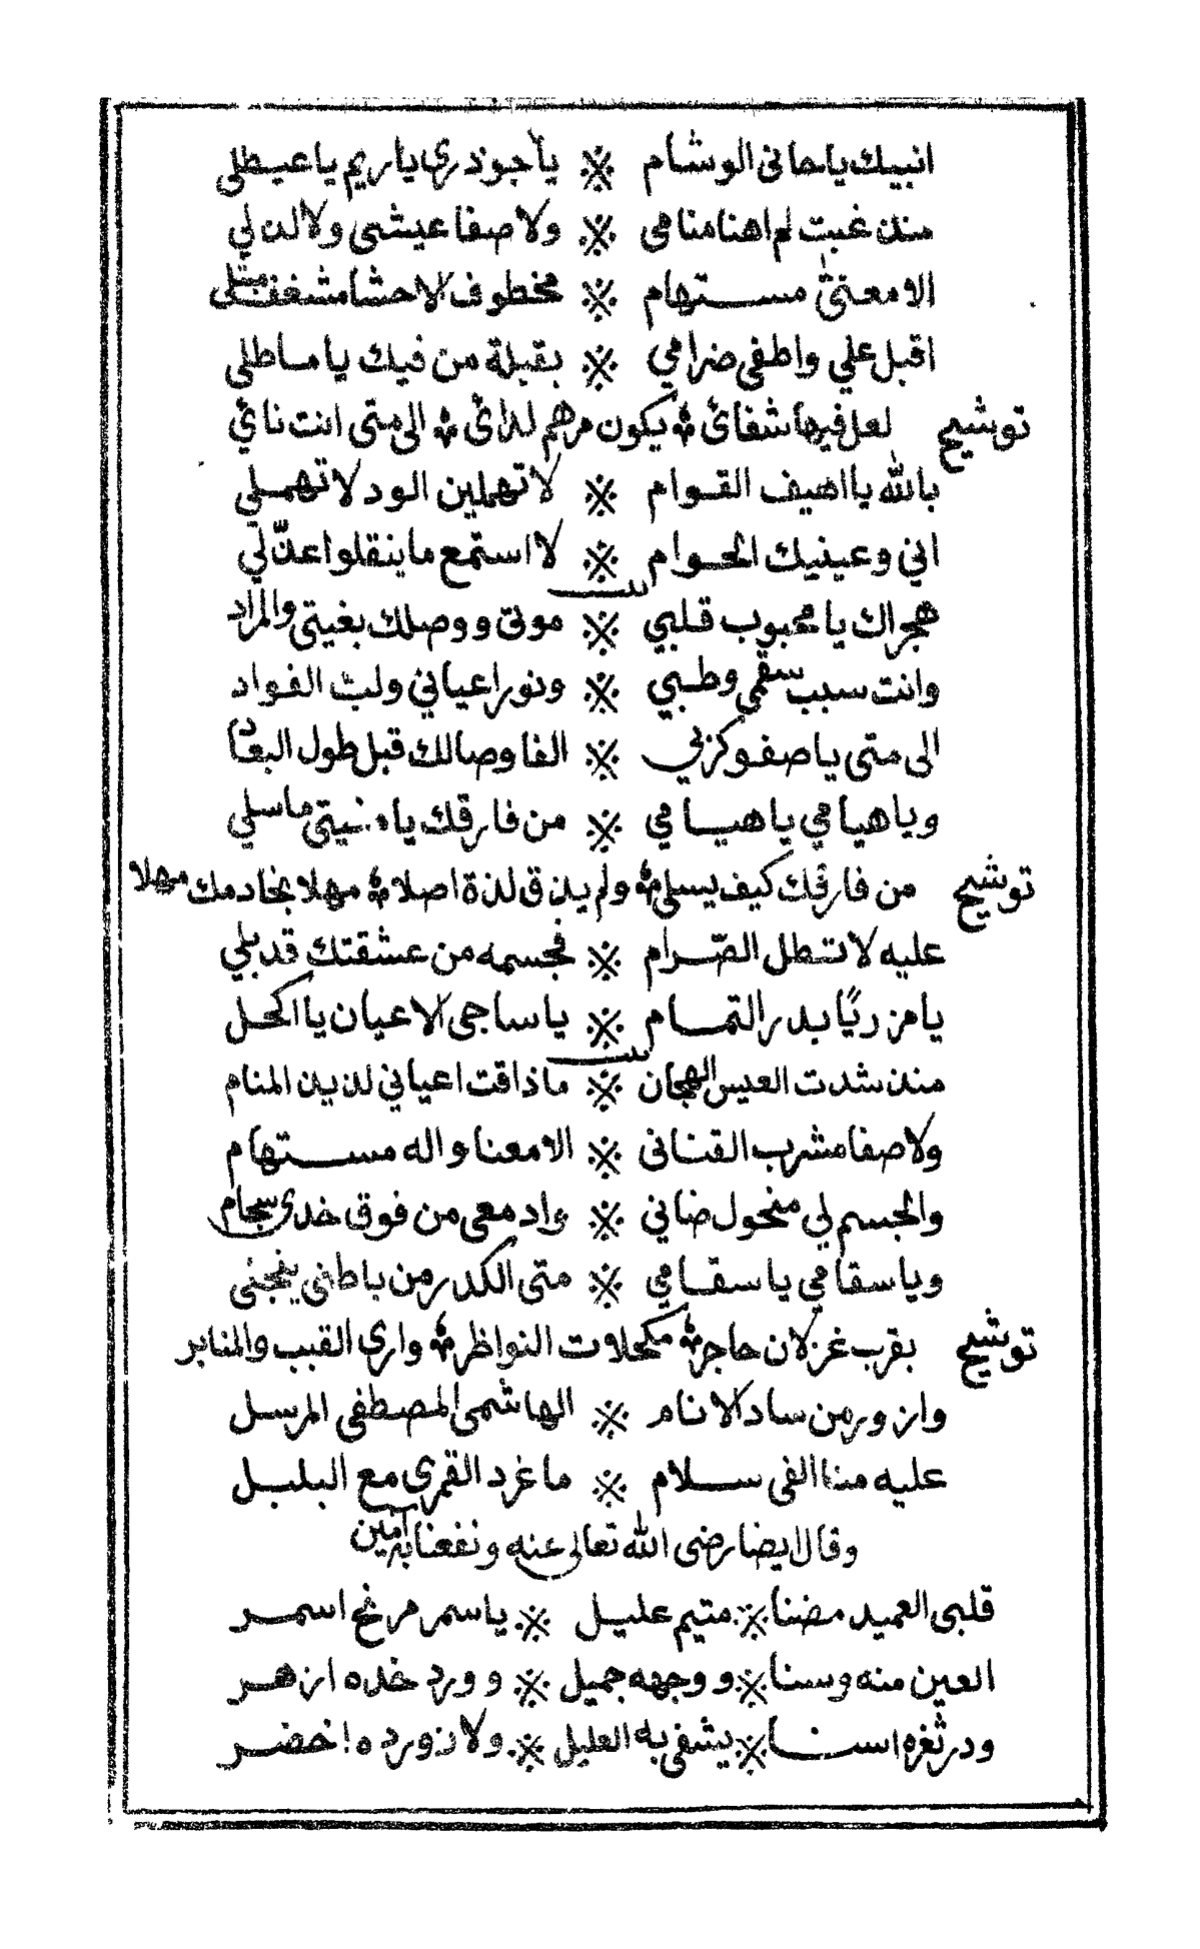 انبيك ياحانى الوشام ※ ياجوذرى ياريم ياعيطلى
منذ غبت لم اهنا منامى ※ ولا صفا عيشى ولا لذ لي
الا معتنىً مستهام ※ مخطوف لاحشا مشغف مبتلى
اقبل علي واطفى ضرامي ※ بقبلة من فيك يا ماطلى
توشيح لعل فيها شفائ ؞ يكون مرهم لدائ ؞ الى متى انت نائي
بالله يا اهيف القوام ※ لا تهملين الود لا تهملي
اني وعينيك الحوام ※ لا استمع ماينقلوا عذّلي
بيت
هجراك يا محبوب قلبي ※ موتى ووصلك بغيتى والمراد
وانت سبب سقمى وطبي ※ ونور اعياني ولبّ الفواد
الى متى ياصفو كزبي ※ الفا وصالك قبل طول البعاد
وياهيامي ياهيامي ※ من فارقك يا منيتى ماسلي
توشيح من فارقك كيف يسلى ؞ ولم يذق لذة اصلا ؞ مهلا بخادمك مهلا
عليه لا تطل الصّرام ※ فجسمه من عشقتك قد بلي
يامزريًا بدر التمام ※ ياساجى الاعيان يا اكحل
بيت
منذ شدت العيس الهجان ※ ماذاقت اعياني لذيذ المنام
ولا صفا مشرب القنانى ※ الا معنا واله مستهام
والجسم لي منحول ضاني ※ وادمعى من فوق خدى سجام
وياسقامي ياسقامي ※ متى الكدر من باطنى ينجنى
توشيح بقرب غزلان حاجر ؞ مكحلات النواظر ؞ وارى القبب والمنابر
وازور من ساد الانام ※ الهاشمى المصطفى المرسل
عليه منا الفى سلام ※ ما غرد القمرى مع البلبل
وقال ايضا رضى الله تعالى عنه ونفعنا به آمين
قلبى العميد مضنا ※ متيم عليل ※ ياسمر مرنح اسمر
العين منه وسنا ※ ووجهه جميل ※ وورد خده ازهر
ودر ثغره اسنا ※ يشفى به العليل ※ ولازورده اخضر